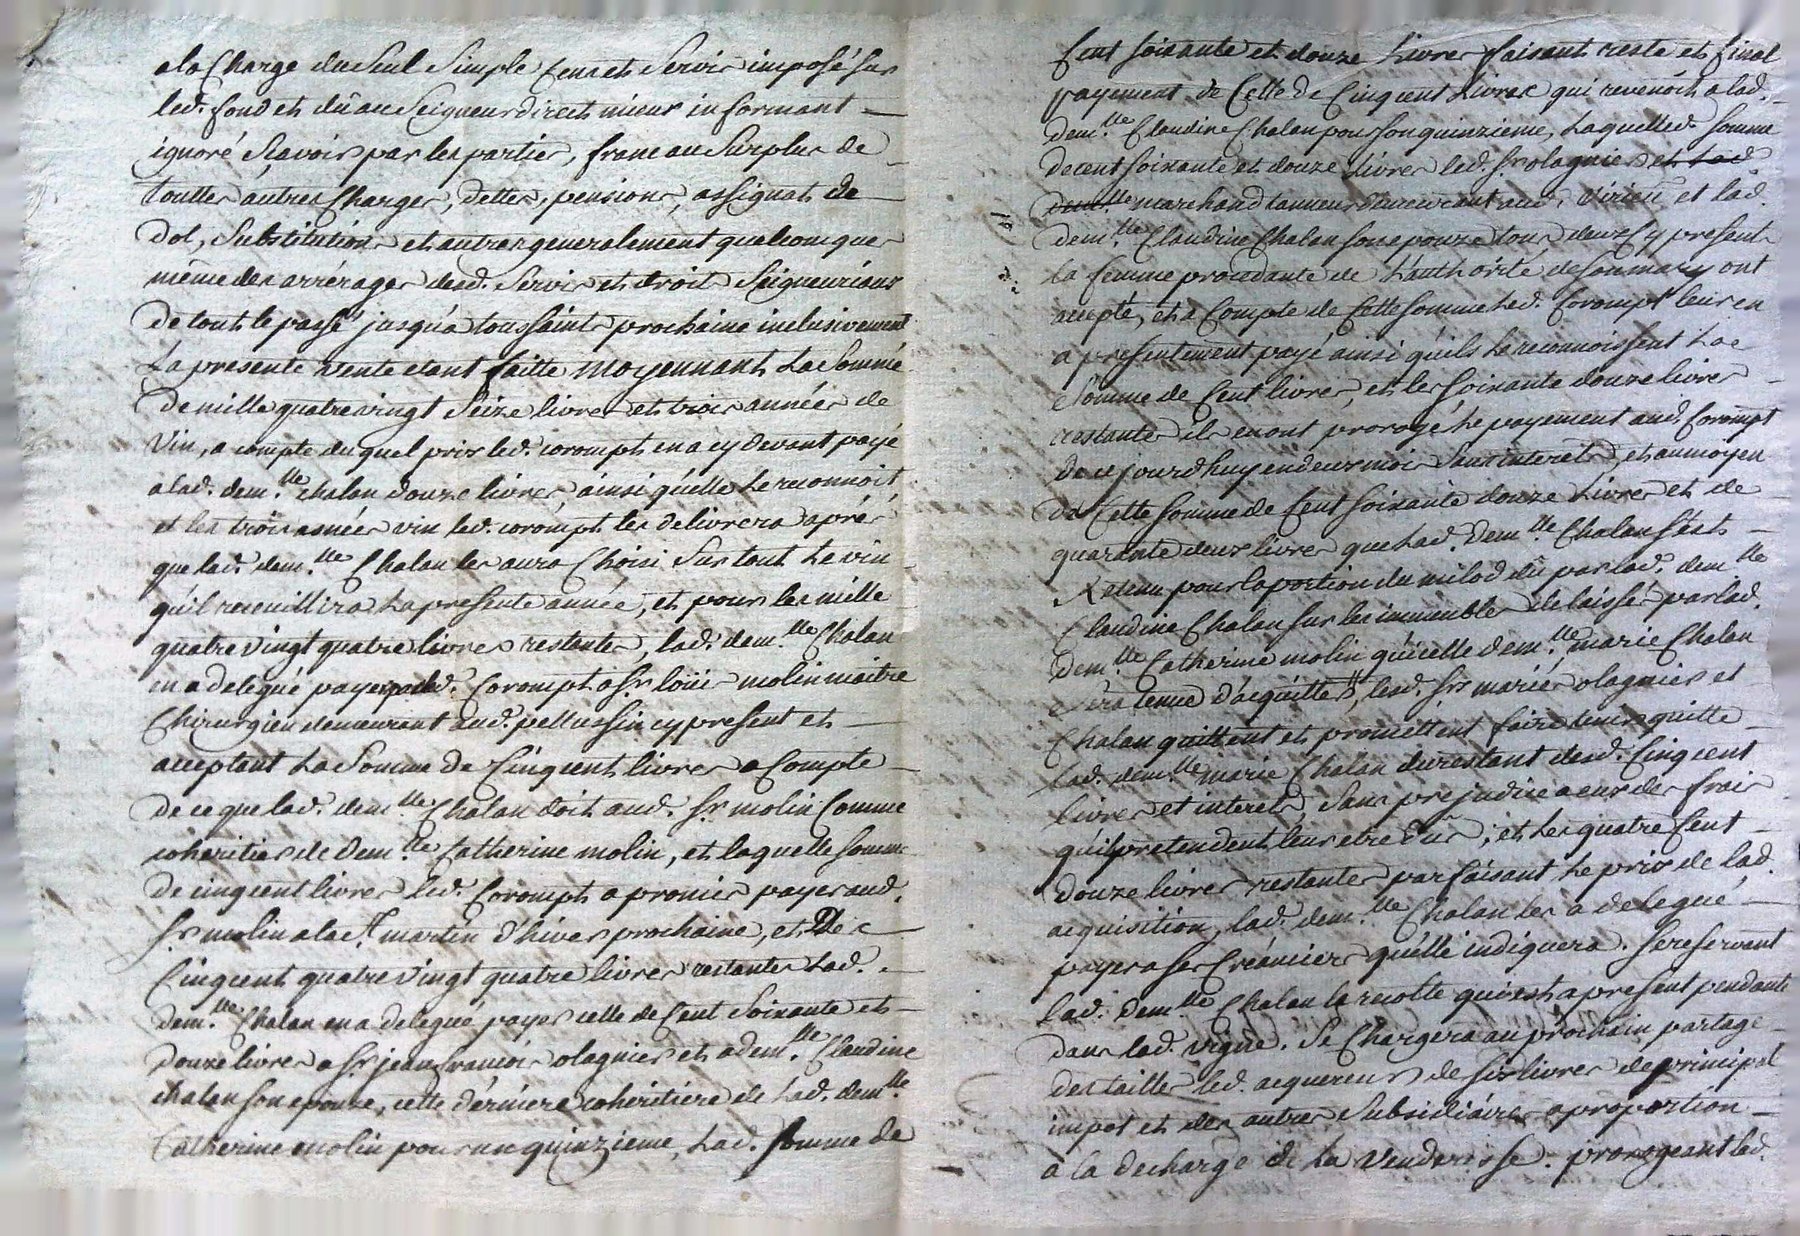 a la Charge du Seul Simple Cens et Servis imposé sur
led. fond et dû au Seigneur direct mieux informant
ignoré Scavoir par les parties, franc au Surplus de
touttes autres Charges, dettes, pensions, assignats de
Dol, Substitution et autres generalement quelconques
même des arrérages desd. Servis et droits Seigneuriaux
de tout le passé jusqu'a toussaints prochaine inclusivement
La presente vente etant faitte moyennant La Somme
De mille quatrevingt Seize livres et trois années de
Vin, a compte du quel prix led. corompt en a cy devant payé
a lad. dem.lle chalan douze livres ainsi qu'elle Le reconnoit
et les trois asnées vin led. corompt les delivrera aprés
que lad. dem.lle Chalan les aura Choisi Sur tout Le vin
qu'il recueillira La presente année, et pour les mille
quatre vingt quatre livres restantes, lad. dem.lle Chalan
en a delegué payer led. Corompt a Sr. loüis molin maitre
Chirurgien demeurant aud. pellussin cy present et
acceptant La Somme de Cinq cent livres a Compte
De ce que lad. dem.lle Chalan doit aud. Sr. molin Comme
coheritier de Dem.lle Catherine molin, et laquelle Somme
de cinq cent livres led. Corompt a promis payer aud.
Sr. molin a la St. martin d'hiver prochaine, et Des
Cinq cent quatre vingt quatre livres restantes Lad.
dem.lle Chalan en a delegué payer celle de Cent Soixante et
douze livres a Sr. jean francois olagnier et a dem.lle Claudine
chalan son epouse, cette dérniere coheritiere de Lad. dem.lle
Catherine molin pour un quinzieme, Lad. Somme de
Cent soixante et douze Livres faisant reste et final
payement de Celle de Cinq cent Livres qui revenoit a lad.
dem.lle Claudine Chalan pour son quinzieme, Laquelle d. Somme
de cent soixante et douze Livres led. Sr. olagnier et Lad
dem.lle marchand tanneur demeurant aud. Virieu et lad.
dem.lle Claudine Chalan son epouze tous deux Cy present
La femme procedante de L'authorité de son mary ont
accepté, et a Compte de Cette Somme Led. Corompt leur en
a presentement payé ainsi qu'ils Le reconnoissent La
Somme de Cent livres, et les soixante douze livres
restantes ils en ont prorogé Le payement aud. Corompt
de ce jourd'huy en deux mois Sans interets, et au moyen
de Cette somme de Cent soixante douze Livres et de
quarante deux livres que Lad. Dem.lle Chalan s'est
Retenu pour la portion du milod dû par lad. dem.lle
Claudine Chalan sur les immeubles delaissés par lad.
dem.lle Catherine molin qu'icelle dem.lle marie Chalan
Sera tenue d'acquitter, lesd. Srs. mariés olagnier et
Chalan quittent et promettent faire tenir quitte
Lad. dem.lle marie Chalan du restant desd. Cinq cent
livres et interets, Sans prejudice a eux des frais
qu'ils pretendent leur etre dûs ; et Les quatre Cent
Douze livres restantes parfaisant Le prix de lad.
acquisition, lad. dem.lle Chalan les a delegué
payer a ses Créanciers qu'elle indiquera. Se reservant
lad. Dem.lle Chalan la recolte qui est a present pendante
dans lad. vigne. Se Chargera au prochain partage
des tailles led. acquereur de six livres de principal
impot et des autres Subsidiaires a proportion
a la decharge de La Venderesse. prorogeant lad.